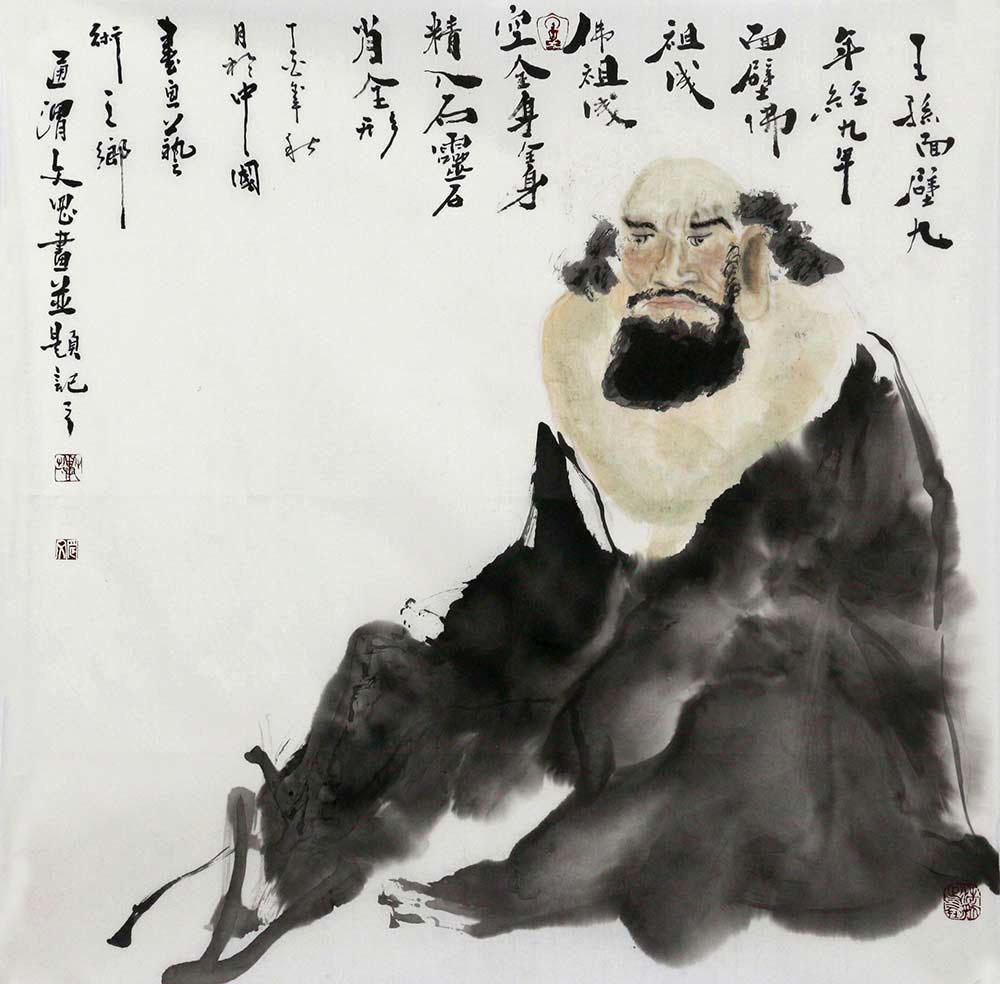 王孫面壁九
年經九年
面壁佛
祖成
佛祖成
空全身全身
精入石靈石
肖全形
丁酉年秋
月於中國
書畫藝
術之鄉
通渭文 畫並題記之